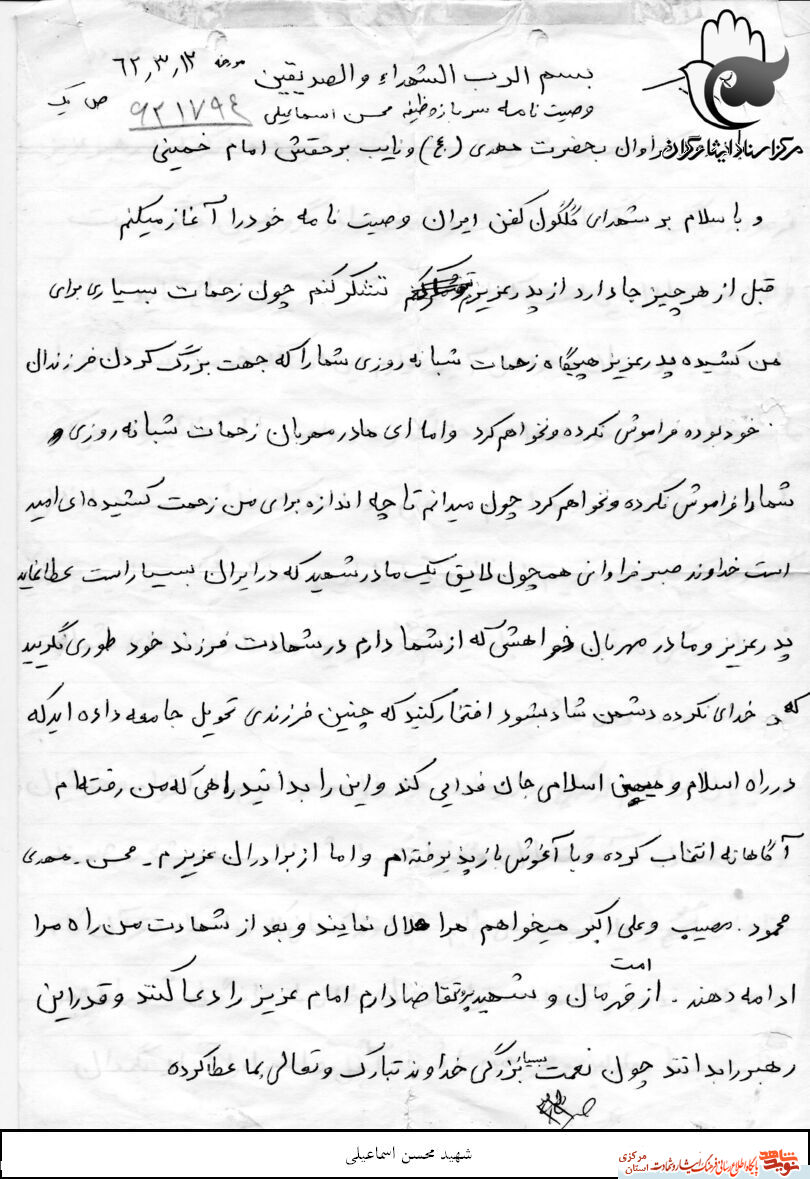 بسم الرب الشهداء و الصدیقین مورخه ۶۲,۳,۱۳
وصیت نامه سرباز وظیفه محسن اسماعیلی ۹۲۱۷۹۴ ص یک
مرکز اسناد ایثارگران
فراوان بحضرت مهدی (عج) و نایب برحقش امام خمینی
و با سلام بر شهدای گلگون کفن ایران وصیت نامه خود را آغاز میکنم
قبل از هر چیز جا دارد از پدر عزیزم تشکر کنم چون زحمات بسیاری برای
من کشیده پدر عزیز هیچگاه زحمات شبانه روزی شما را که جهت بزرگ کردن فرزندان
خود بوده فراموش نکرده و نخواهم کرد و اما ای مادر مهربان زحمات شبانه روزی
شما را فراموش نکرده و نخواهم کرد چون میدانم تا چه اندازه برای من زحمت کشیده ای امید
است خداوند صبر فراوانی همچون لایق یک مادر شهید که در ایران بسیار است عطا نماید
پدر عزیز و مادر مهربان خواهشی که از شما دارم در شهادت فرزند خود طوری نگریید
که خدای نکرده دشمن شاد بشود افتخار کنید که چنین فرزندی تحویل جامعه داده اید که
در راه اسلام و میهن اسلامی جان فدایی کند و این را بدانید راهی که من رفته ام
آگاهانه انتخاب کرده و با آغوش باز پذیرفته ام و اما از برادران عزیزم - محسن - مهدی
محمود - مصیب و علی اکبر میخواهم مرا حلال نمایند و بعد از شهادت من راه مرا
ادامه دهند . از امت قهرمان و شهید پرور تقاضا دارم امام عزیز را دعا کنند و قدر این
رهبر را بدانند چون نعمت بسیار بزرگی خداوند تبارک و تعالی بما عطا کرده
شهید محسن اسماعیلی
نوید شاهد
پایگاه اطلاع رسانی فرهنگ ایثار و شهادت استان مرکزی